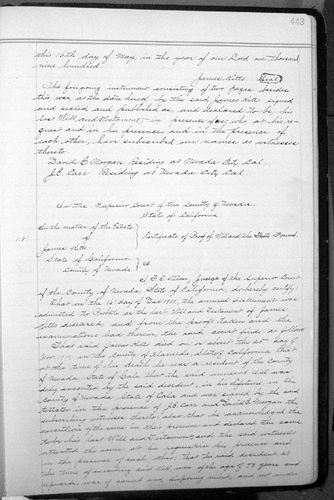 443
this 15th day of May, in the year of our Lord one Thousand
nine hundred
James Kitts (Seal)
The foregoing instrument consisting of two pages besides
this, was at the date hereof, by the said James Kitts signed
and sealed and published as, and declared to be, his
last Will and Testament, in presence of us, who, at his re-
quest and in his presence, and in the presence of
each other, have subscribed our names as witnesses
thereto.
David E Morgan Residing at Nevada City Cal.
J.C. Carr Residing at Nevada City Cal.
In the Superior Court of the County of Nevada.
State of California
In the matter of the Estate
of
James Kitts
Certificate of Proof of Will and the Facts Found.
State of California
County of Nevada
ss
Judge of the Superior Court
of the County of Nevada, State of California, do hereby certify:
That on the 16 day of Dec 1901, the annexed Instrument was
admitted to Probate as the last Will and Testament of James
Kitts deceased, and from the proofs taken and the
examinations had therein, the said court finds as follows
That said James Kitts died on or about the day of
Nov. in the County of Alameda, State of California, that
at the time of his death he was a resident of the County
of Nevada, State of Cala that the said annexed Will was
duly executed by the said decedent, in his lifetime in the
County of Nevada, State of Cala and was signed by the said
testator in the presence of J.C. Carr and David E Morgan the
subscribing witnesses thereto, also that he acknowledged the
execution of the same in their presence, and declared the same
to be his last Will and Testament, and the said witnesses
attested the same at his request in his presence and
in the presence of each other, that the said decedent at
the time of executing said Will, was of the age of years and
upwards, was of sound and disposing mind, and not under